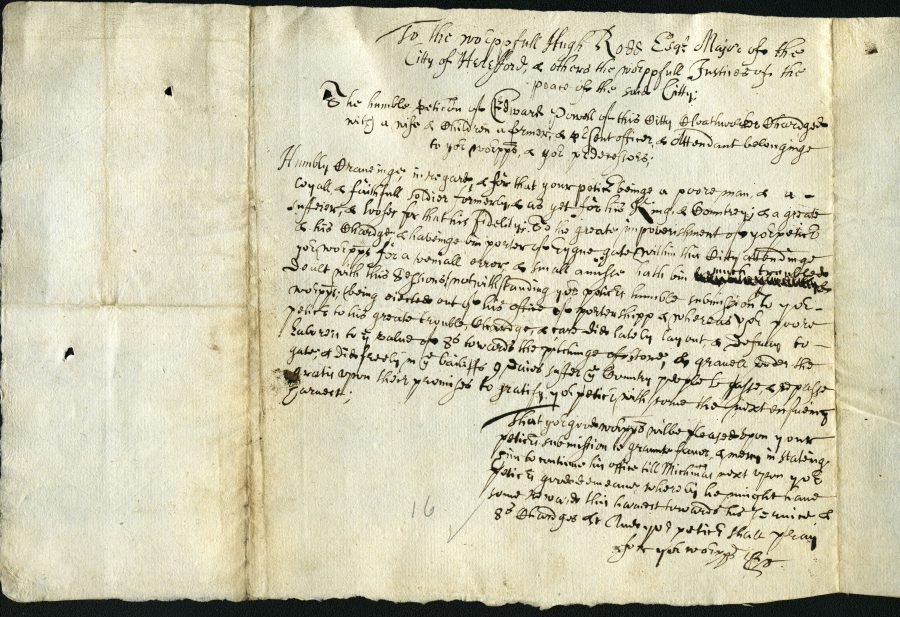 To the worppfull Hugh Rods Esqr Maior of the
Citty of Hereford, & others the worppfull Justices of the
peace of the said Citty;
The humble peticon of Edward Powell of this Citty Cloathworker Chardged
with a wife & Children a former, & prsent officer, & Attendant belonginge
to yor worpps, & yor predecessors;
Humbly Craveinge in regard, & for that your peticr beinge a poore man, & a
loyall, & faithfull soldier formerly & as yet for his Kinge, & Countrey, & a greate
sufferer, & looser for that his fidelity, To the greate impoverishment of yor peticr
& his Chardge & havinge bin porter of Eygne gate within this Citty attendinge
yor worpps for a veniall error, & small amisse hath bin much troubled
dealt with this Sessions notwithstanding yor peticrs humble submission to yor
worpps; beinge eiected out of his office of portershipp & whereas yor poore
peticr to his great trouble, Chardges, & care did lately lay out & defray to
laborers to ye value of 8s towards the pitchinge of stone, & gravell under the
gate, & did freely in ye bailiffs 9 daies suffer ye Country people to passe, & repasse
gratis upon their promises to gratify yor peticr with some the next ensueing
harvest;
That yor good worpps wilbe pleased upon your
peticrs submission to graunte favor, & mercy in
him to continue his office till Michmas next upon yor
peticrs good demeanr, whereby he might have
some rewards this harvest towards his service &
8s Chardges &c And yor peticr shall pray
for yor worpps &c
16